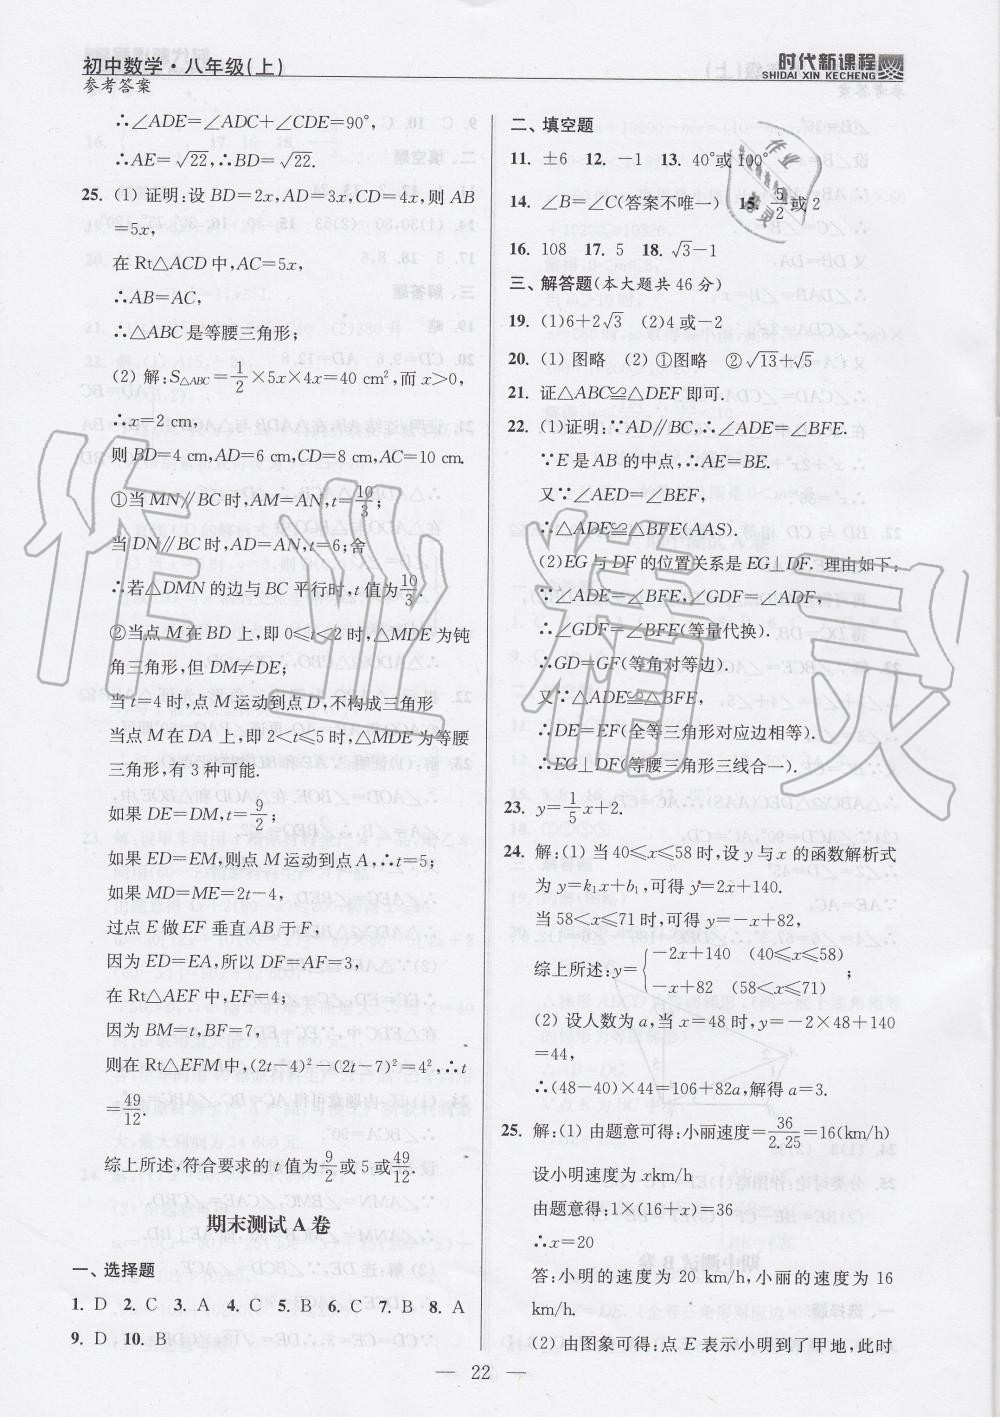 初中数学·八年级(上)
参考答案
时代新课程
SHIDAI XIN KECHENG
∴∠ADE=∠ADC+∠CDE=90°,
∴AE=√22,∴BD=√22.
25. (1) 证明:设 BD=2x,AD=3x,CD=4x,则 AB
=5x,
在 Rt△ACD 中,AC=5x,
∴AB=AC,
∴△ABC 是等腰三角形;
(2) 解:S△ABC=1/2×5x×4x=40 cm²,而 x>0,
∴x=2 cm,
则 BD=4 cm,AD=6 cm,CD=8 cm,AC=10 cm.
①当 MN∥BC 时,AM=AN,t=10/3;
当 DN∥BC 时,AD=AN,t=6;舍
∴若△DMN 的边与 BC 平行时,t 值为10/3.
②当点 M 在 BD 上,即 0≤t<2 时,△MDE 为钝
角三角形,但 DM≠DE;
当 t=4 时,点 M 运动到点 D,不构成三角形
当点 M 在 DA 上,即 2<t≤5 时,△MDE 为等腰
三角形,有 3 种可能.
如果 DE=DM,t=9/2;
如果 ED=EM,则点 M 运动到点 A,∴t=5;
如果 MD=ME=2t-4,
过点 E 做 EF 垂直 AB 于 F,
因为 ED=EA,所以 DF=AF=3,
在 Rt△AEF 中,EF=4;
因为 BM=t,BF=7,
则在 Rt△EFM 中,(2t-4)²-(2t-7)²=4²,∴t
=49/12.
综上所述,符合要求的 t 值为9/2或 5 或49/12.
期末测试 A 卷
一、选择题
1. D 2. C 3. A 4. C 5. B 6. C 7. B 8. A
9. D 10. B
二、填空题
11. ±6 12. -1 13. 40°或100°
14. ∠B=∠C(答案不唯一) 15. 5/2或 2
16. 108 17. 5 18. √3-1
三、解答题(本大题共 46 分)
19. (1)6+2√3 (2)4 或-2
20. (1) 图略 (2) ①图略 ②√13+√5
21. 证△ABC≌△DEF 即可.
22. (1)证明:∵AD∥BC,∴∠ADE=∠BFE.
∵E 是 AB 的中点,∴AE=BE.
又∵∠AED=∠BEF,
∴△ADE≌△BFE(AAS).
(2)EG 与 DF 的位置关系是 EG⊥DF. 理由如下:
∵∠ADE=∠BFE,∠GDF=∠ADF,
∴∠GDF=∠BFE(等量代换).
∴GD=GF(等角对等边).
又∵△ADE≌△BFE,
∴DE=EF(全等三角形对应边相等).
∴EG⊥DF(等腰三角形三线合一).
23. y=1/5x+2.
24. 解:(1) 当 40≤x≤58 时,设 y 与 x 的函数解析式
为 y=k₁x+b₁,可得 y=2x+140.
当 58<x≤71 时,可得 y=-x+82,
综上所述:y={-2x+140 (40≤x≤58)
-x+82 (58<x≤71);
(2) 设人数为 a,当 x=48 时,y=-2×48+140
=44,
∴(48-40)×44=106+82a,解得 a=3.
25. 解:(1) 由题意可得:小丽速度=36/2.25=16(km/h)
设小明速度为 xkm/h
由题意得:1×(16+x)=36
∴x=20
答:小明的速度为 20 km/h,小丽的速度为 16
km/h.
(2) 由图象可得:点 E 表示小明到了甲地,此时
— 22 —
作业精灵